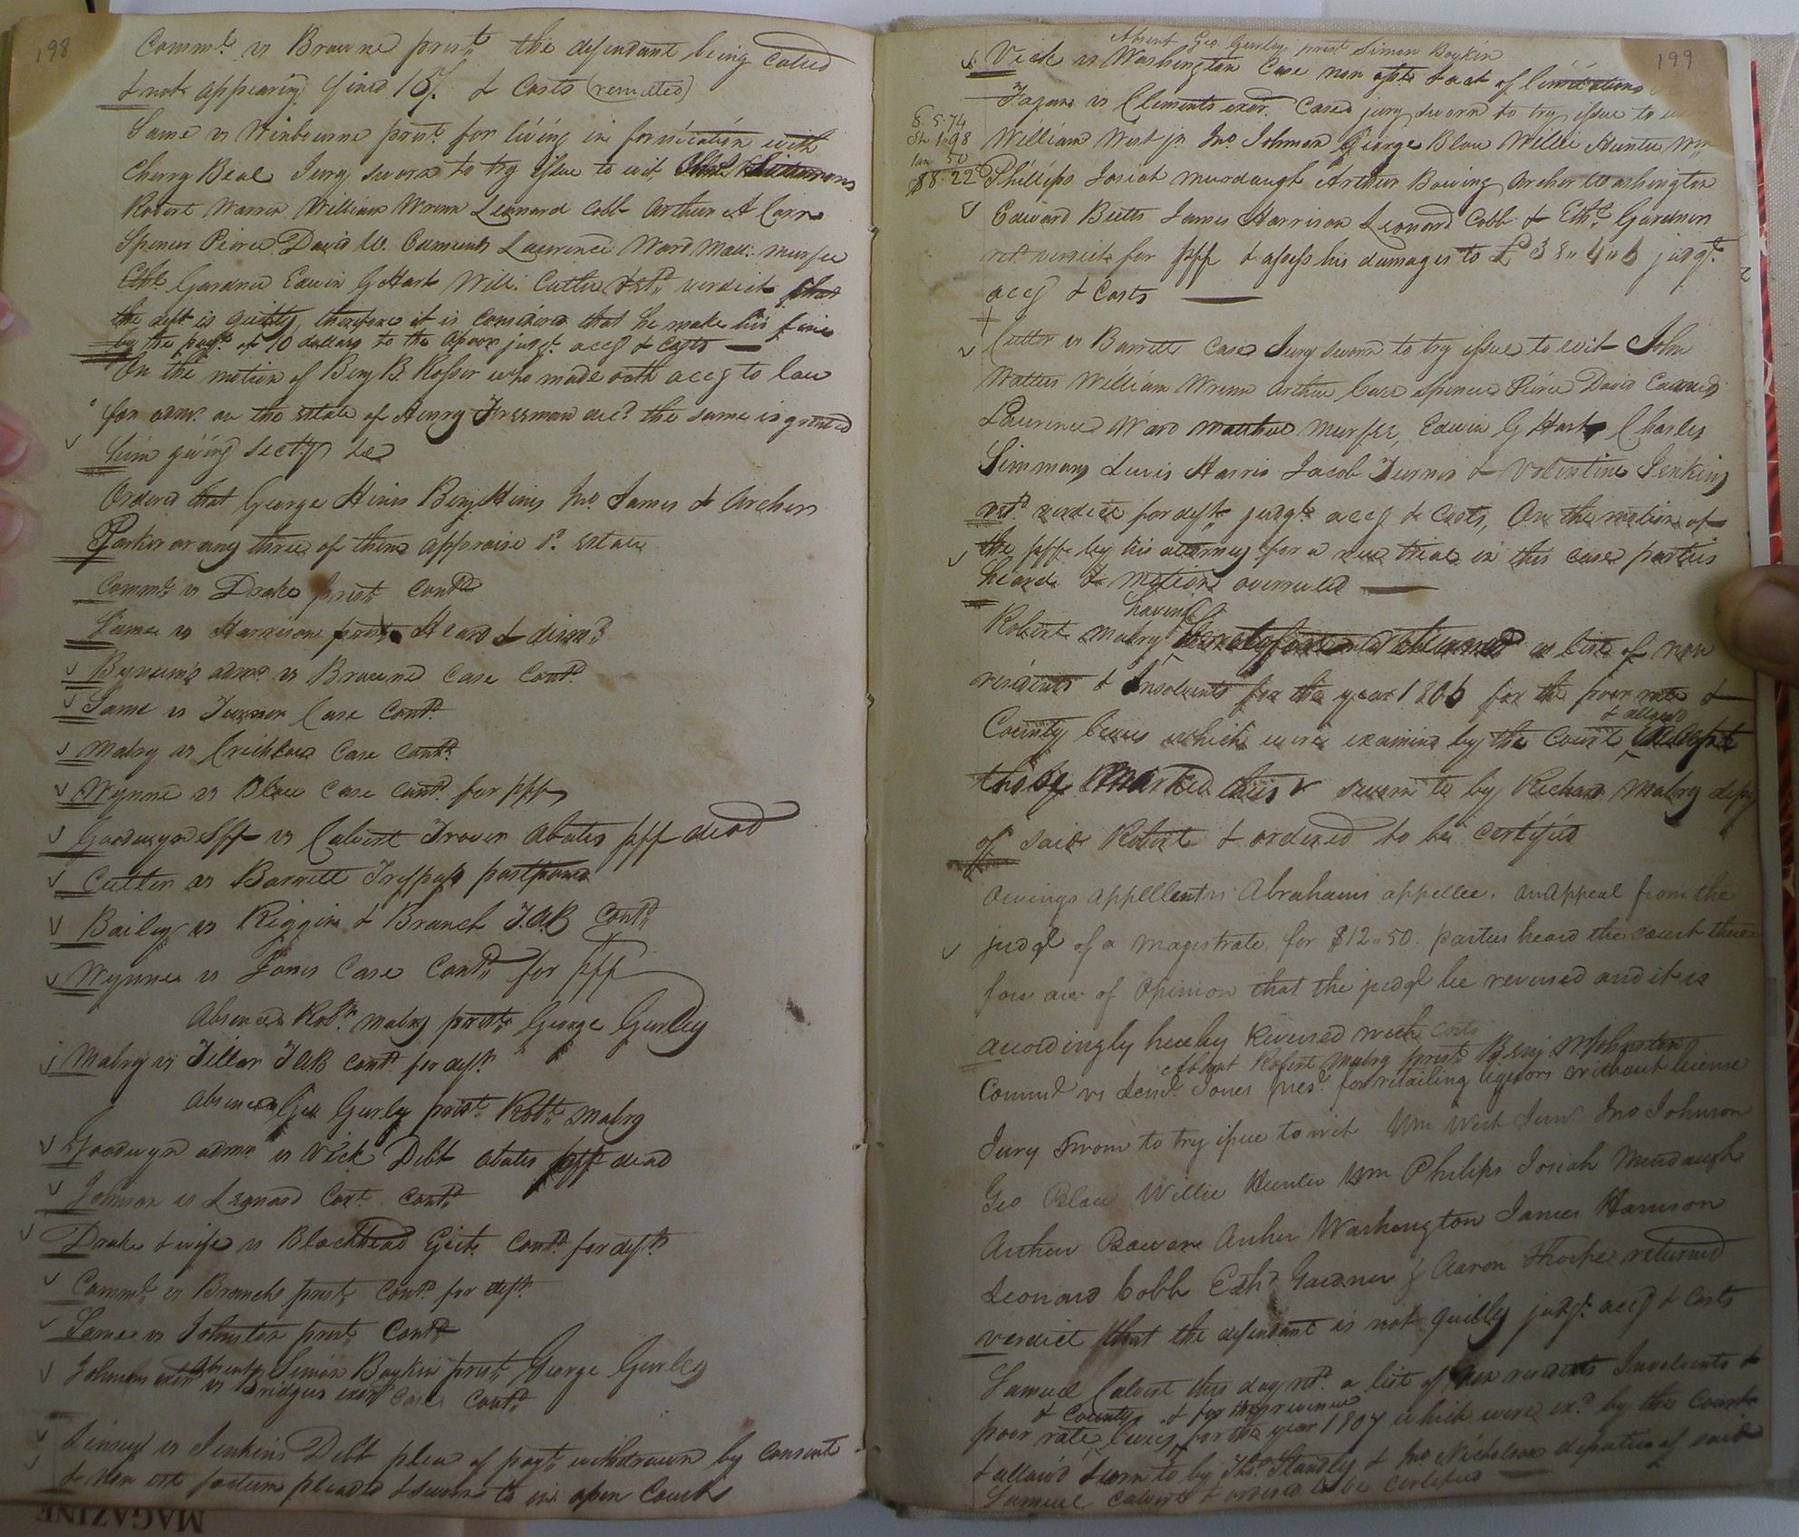 198
Commth vs Browne prest the defendant being called
& not appearing fined 16/. & Costs (remitted)
Same vs Winbourne prest for living in fornication with
Cherry Beal Jury sworn to try issue to wit
Robert Warren William Wrenn Leonard Cobb Arthur A Carr
Spencer Peirce David W. Laurence Ward Matt: Murfee
Ethd Gardner Edwin G Hart Will: Cutler retd verdict that
the deft is guilty, therefore it is considered that he make his fine
by the payt of 10 dollars to the judgt accg & Costs
On the motion of Benj B. Rosser who made oath accg to law
for admr on the estate of Henry Freeman decd the same is granted
him giving secty &c
Ordered that George Hines Benj Hines Jno James & Archer
Parker or any three of them appraise sd estate
Commth vs Drake prest contd
Same vs Harrison prest Heard & dismd
Bynum's admr vs Browne Case Contd
Same vs Turner Case Contd
Mabry vs Case Contd
Wynne vs Blow Case Contd for plff
Goodwyn plff vs Calvert Trover abates plff dead
Cutler vs Barrett Trespass postponed
Bailey vs Riggin & Branch T.A.B Contd
Wynne vs Jones Case Contd for plff
Absent Robt Mabry prest George Gurley
Mabry vs Tillar TAB contd for deft
Absent Geo Gurley prest Robt Mabry
Goodwyn admr vs Vick Debt abates plff dead
Johnson vs Leonard Cont contd
Drake & wife vs Blackhead Contd for deft
Commth vs Branch prest Contd for deft
Same vs Johnston prest Contd
Absent Simon Boykin prest George Gurley
Johnson exor vs Bridges exor Case Contd
vs Jenkins Debt plea of payt withdrawn by consent
& non est factum pleaded & sworn to in open Court
199
Absent Geo. Gurley prest Simon Boykin
Vick vs Washington Case non asst & act of limitations
Fagans vs Clements exor. Case jury sworn to try issue to
8.5.74
1.98
50
$8.22
William West jr Jno Johnson George Blow Willie Hunter Wm
Phillips Josiah Murdaugh Arthur Bowing Archer Washington
Edward Betts James Harrison Leonard Cobb & Ethd Gardner
retd verdict for plff & assess his damages to £38"4"6 judgt
accg & Costs
Cutler vs Barrett Case Jury sworn to try issue to wit John
Watters William Wrenn Arthur Carr Spencer Peirce David
Laurence Ward Matthew Murfee, Edwin G Hart Charles
Simmons Lewis Harris Jacob Turner & Valentine Jenkins
retd verdict for deft judgt accg & costs, On the motion of
the plff by his attorney for a new trial in this case parties
heard & motion overruled
having
Robert Mabry heretofore returned a list of non
residents & Insolvents for the year 1806 for the poor rate &
& allowed
County levies which were examined by the Court
those marked this v sworn to by Richard Mabry depy
of said Robert & ordered to be certified
Owings appellant vs Abrahams appellee. an appeal from the
judgt of a magistrate for $12.50. parties heard the court there
fore are of opinion that the judgt be reversed and it is
accordingly hereby Reversed with costs
Absent Robert Mabry prest Benj W Johnston
Commth vs Jones prest for retailing liquors without license
Jury sworn to try issue to wit Wm West Junr Jno Johnson
Geo Blow Willie Hunter Wm Philips Josiah Murdaugh
Arthur Bowen Archer Washington James Harrison
Leonard Cobb Ethd Gardner & Aaron Thorpe returned
verdict that the defendant is not guilty judgt accg & Costs
Samuel Calvert this day retd a list of non residents Insolvents &
& County & for the revenue
poor rate levies for the year 1807 which were exd by the Court
& allowed sworn to by Thos Standly & Jno Nicholson deputies of said
Samuel Calvert & ordered to be certified
MAGAZINE